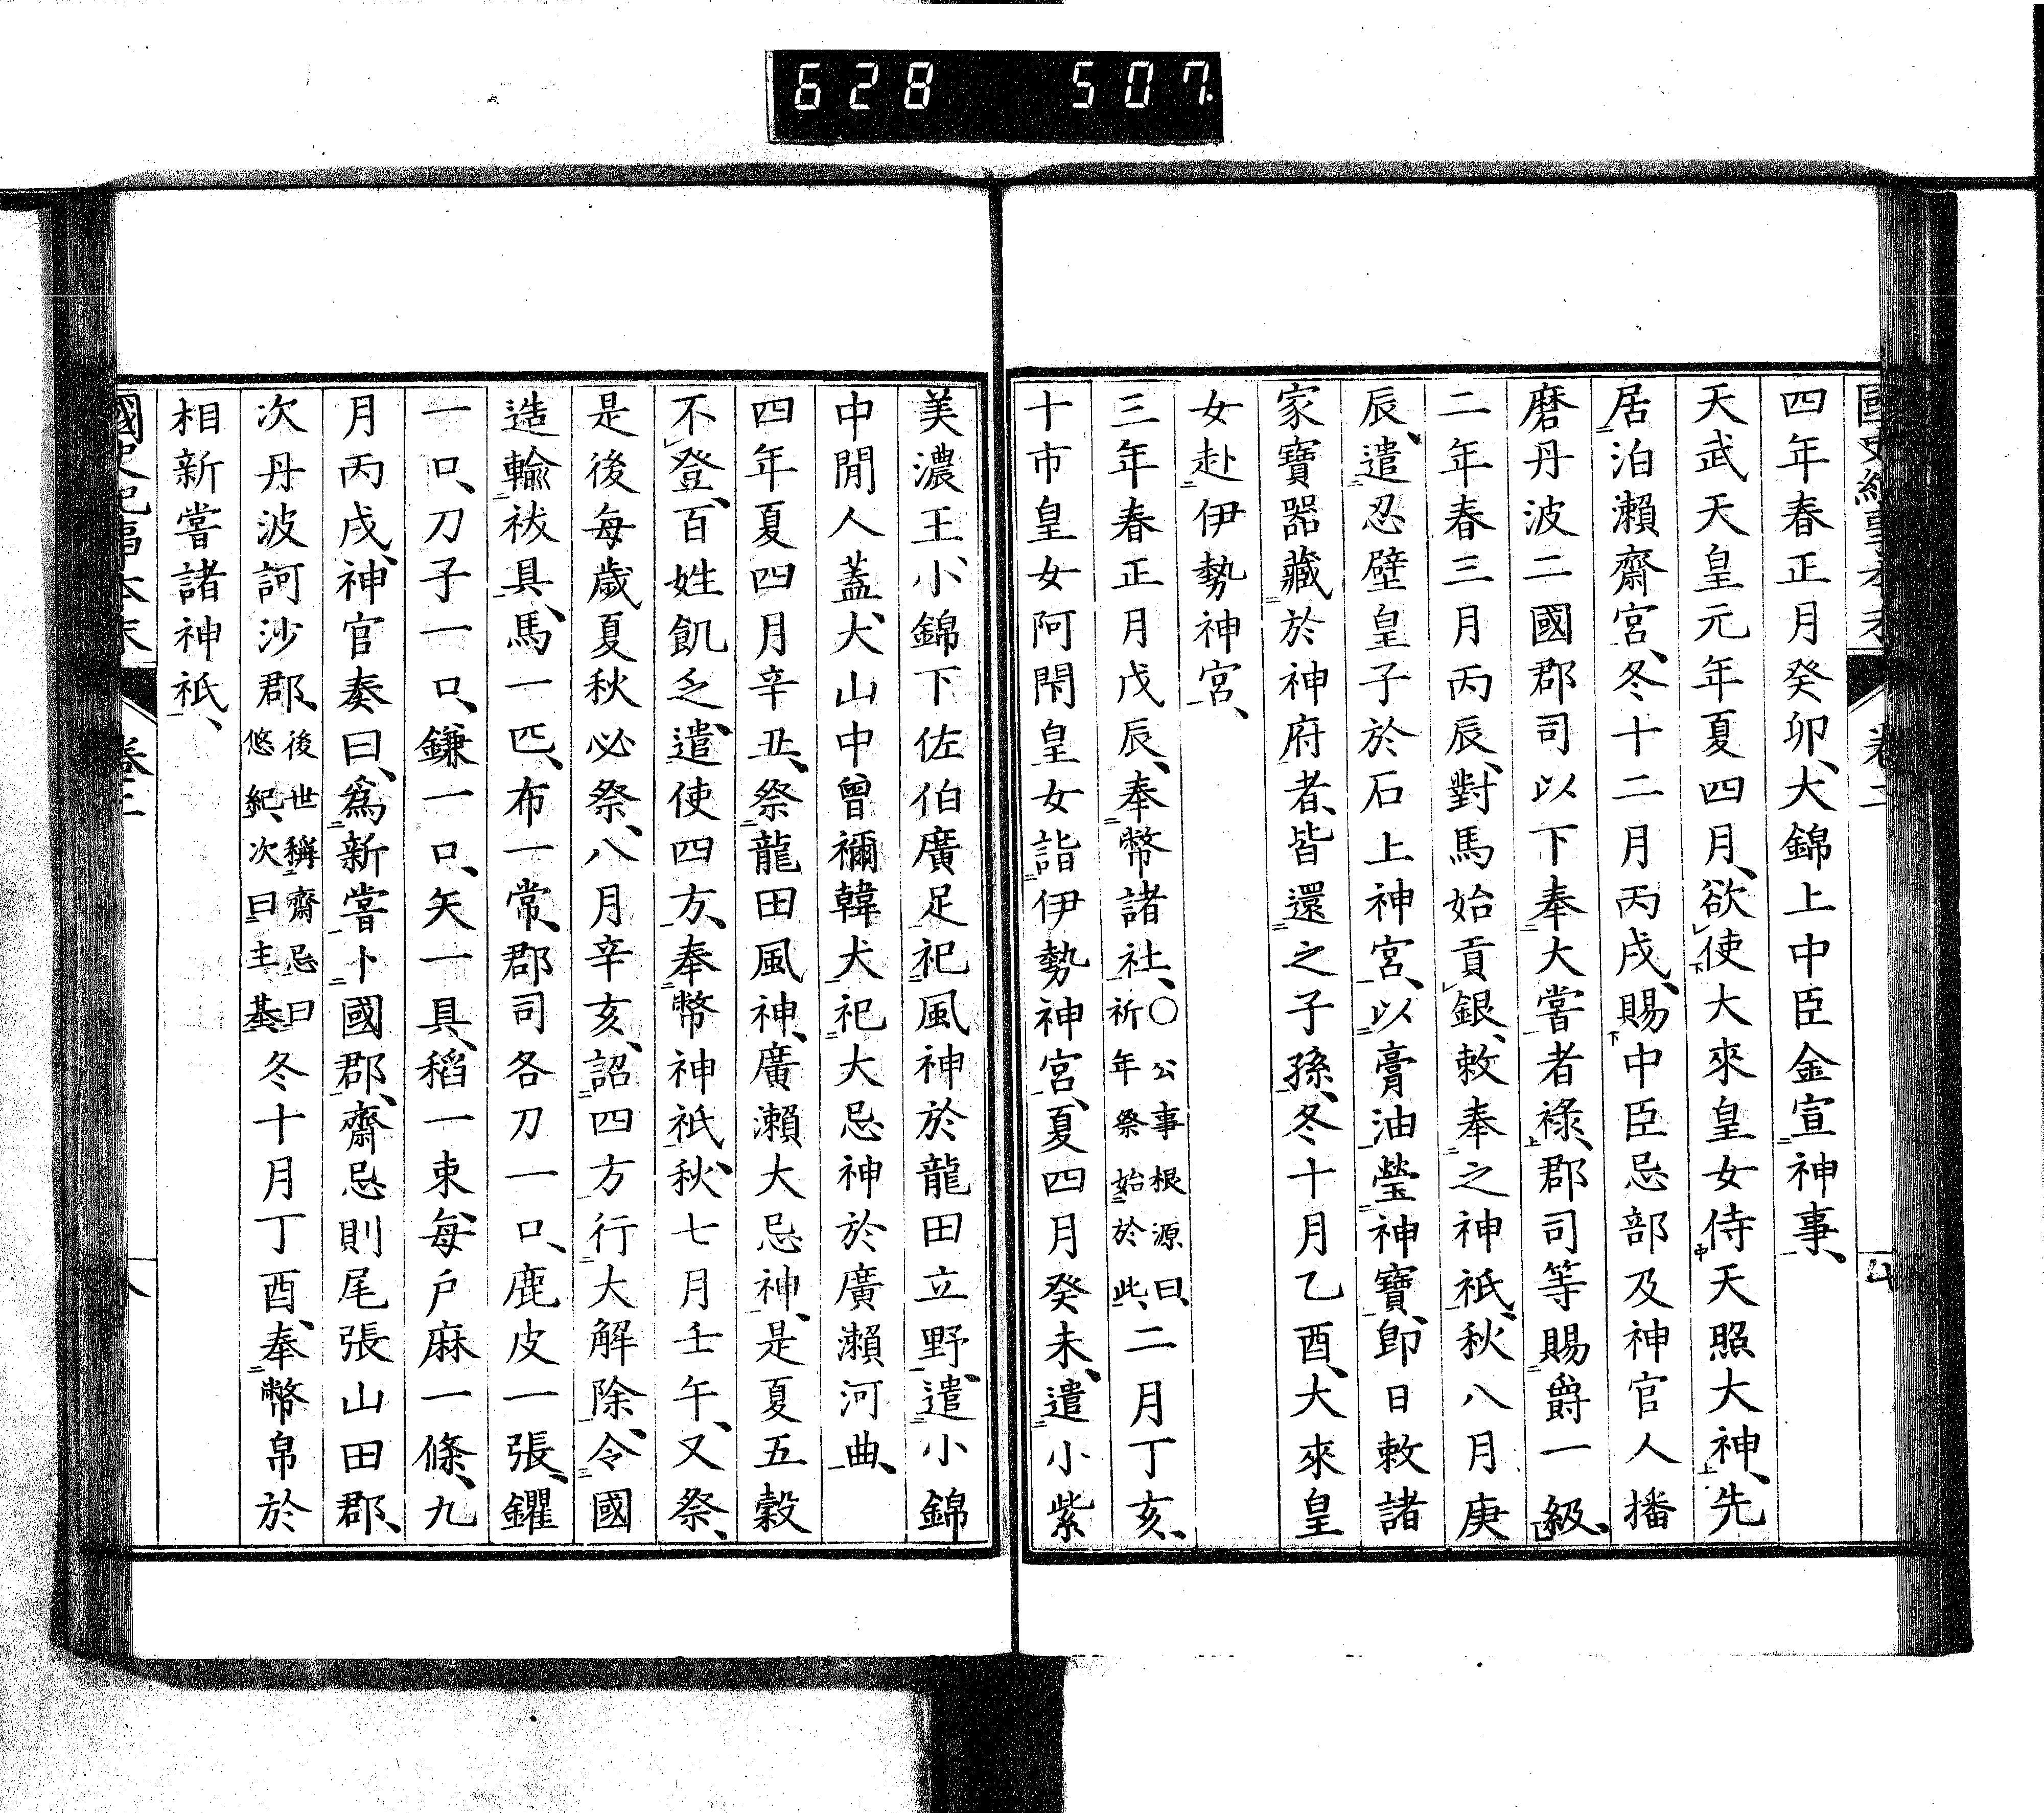 628 507.
四年春正月癸卯、大錦上中臣金宣神事、
天武天皇元年夏四月、欲使大來皇女侍天照大神、先
居泊瀨齋宮、冬十二月丙戌、賜中臣忌部及神官人播
磨丹波二國郡司以下奉大嘗者祿、郡司等賜爵一級、
二年春三月丙辰、對馬始貢銀、敕奉之神祇、秋八月庚
辰、遣忍壁皇子於石上神宮、以膏油瑩神寶、卽日敕諸
家寶器藏於神府者、皆還之子孫、冬十月乙酉、大來皇
女赴伊勢神宮、
三年春正月戊辰、奉幣諸社、○公事根源曰、祈年祭始於此、二月丁亥、
十市皇女阿閇皇女詣伊勢神宮、夏四月癸未、遣小紫
美濃王、小錦下佐伯廣足祀風神於龍田立野、遣小錦
中閒人蓋、大山中曾禰韓犬祀大忌神於廣瀨河曲、
四年夏四月辛丑、祭龍田風神、廣瀨大忌神、是夏五穀
不登、百姓飢乏、遣使四方、奉幣神祇、秋七月壬午、又祭、
是後每歲夏秋必祭、八月辛亥、詔四方行大解除、令國
造輸祓具、馬一匹、布一常、郡司各刀一口、鹿皮一張、钁
一口、刀子一口、鎌一口、矢一具、稻一束、每戶麻一條、九
月丙戌、神官奏曰、爲新嘗卜國郡、齋忌則尾張山田郡、
次丹波訶沙郡、後世稱齋忌曰悠紀、次曰主基、冬十月丁酉、奉幣帛於
相新嘗諸神祇、
國史紀事本末 卷三